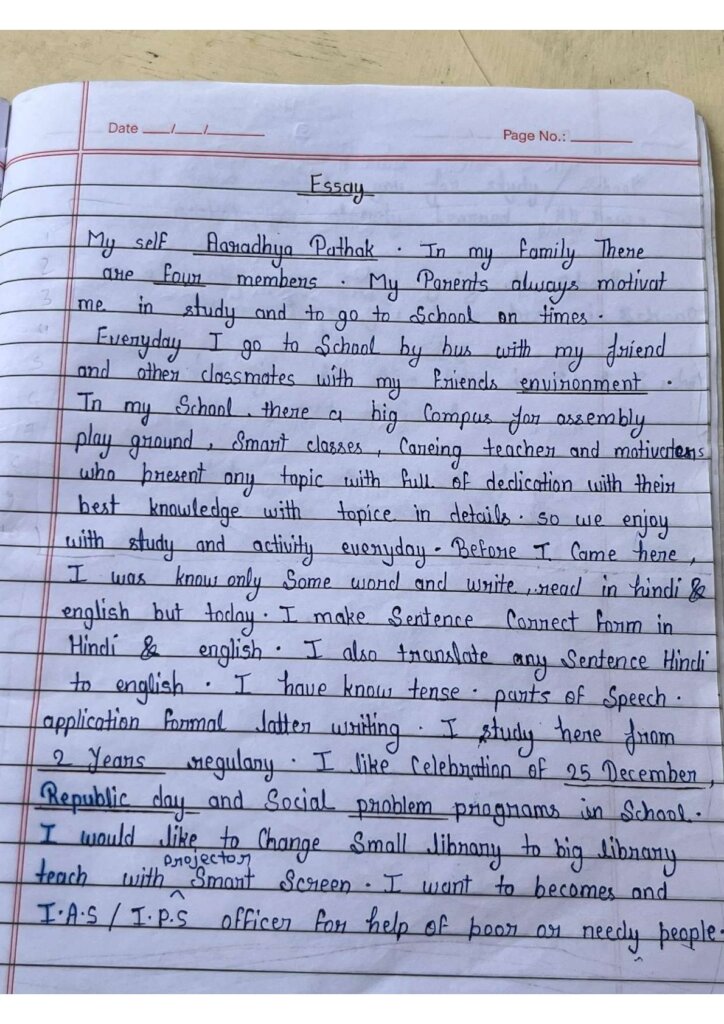 Date __/__/____
Page No.: ____
Essay
My self Aaradhya Pathak. In my family There
are four members. My Parents always motivat
me in study and to go to School on times.
Everyday I go to School by bus with my friend
and other classmates with my friends environment.
In my School. there a big Compus for assembly
play ground, Smart classes, Careing teacher and motivaters
who present any topic with full of dedication with their
best knowledge with topice in details. so we enjoy
with study and activity everyday. Before I Came here,
I was know only Some word and write, read in hindi &
english but today. I make Sentence Correct form in
Hindi & english. I also translate any Sentence Hindi
to english. I have know tense. parts of Speech.
application formal latter writing. I study here from
2 Years regulary. I like Celebration of 25 December,
Republic day and Social problem programs in School.
I would like to Change Small library to big library
teach with projector Smart Screen. I want to becomes and
I.A.S / I.P.S officer for help of poor or needy people.